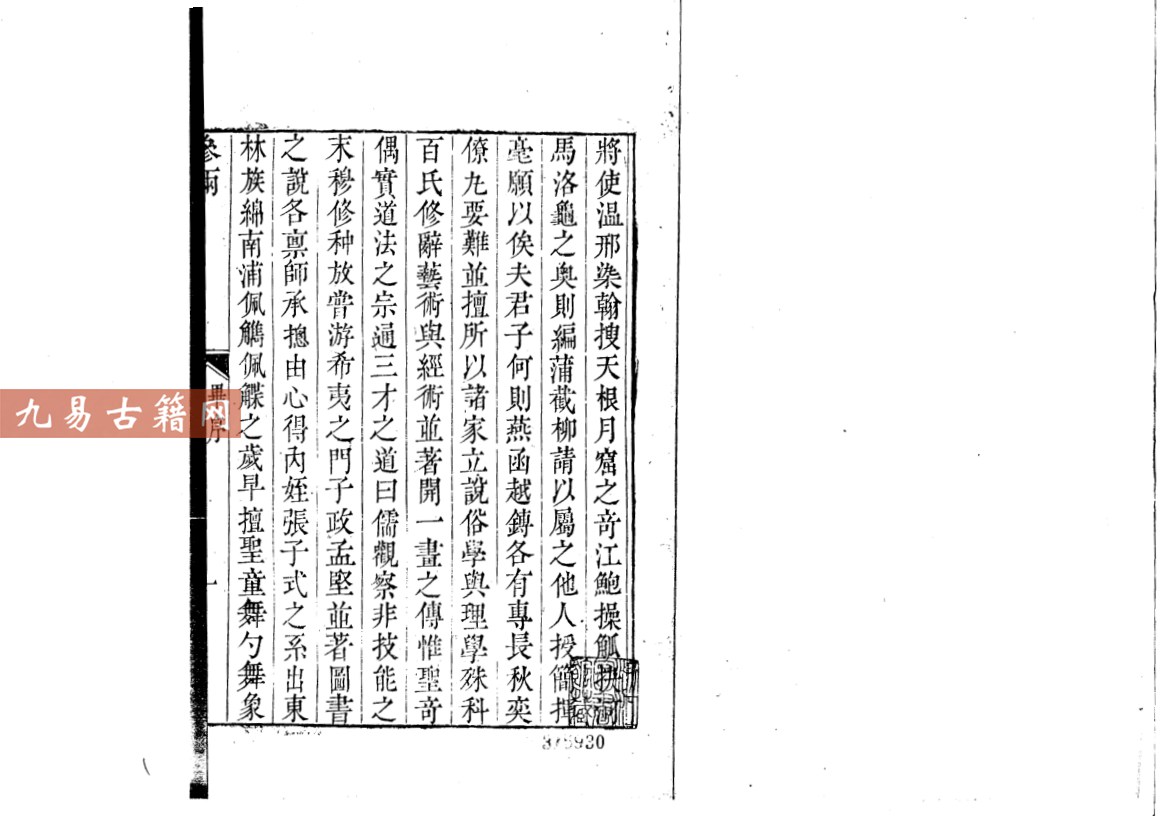 將使温邢染翰搜天根月窟之竒江鮑操觚抉河
馬洛龜之奥則編蒲截栁請以屬之他人授簡揮
毫願以俟夫君子何則燕函越鏄各有專長秋奕
僚九要難並擅所以諸家立說俗學與理學殊科
百氏修辭藝術與經術並著開一畫之傳惟聖竒
偶實道法之宗通三才之道曰儒觀察非技能之
末穆修种放嘗游希夷之門子政孟堅並著圖書
之說各禀師承摠由心得內姪張子式之系出東
林族綿南浦佩觿佩韘之歲早擅聖童舞勺舞象
參兩
序
一
九易古籍网
375930